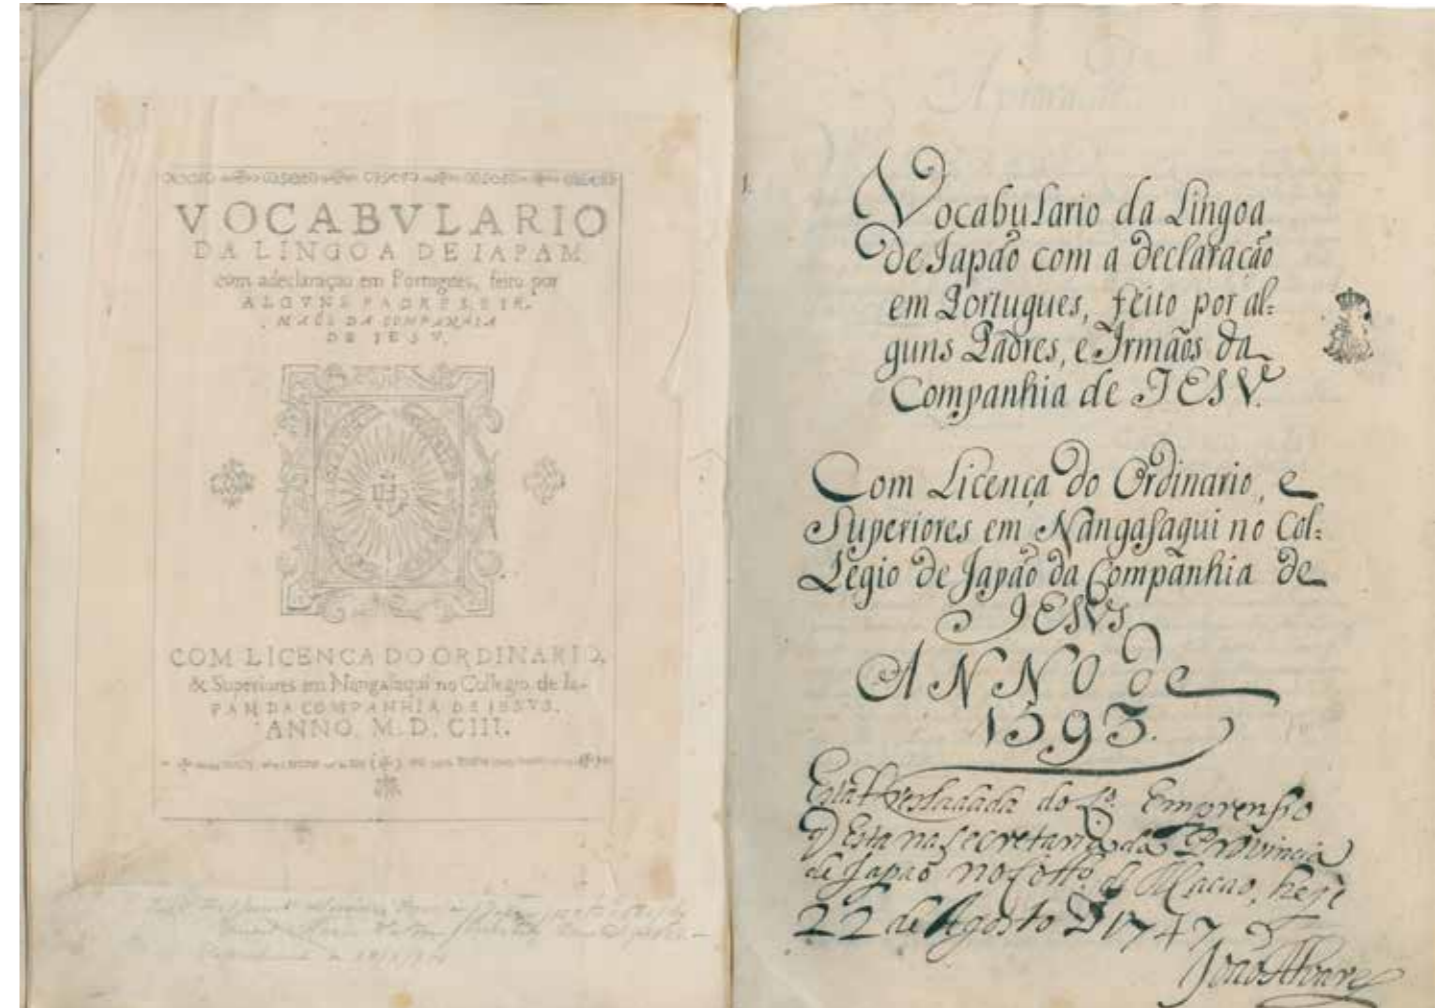 VOCABVLARIO
DA LINGOA DE IAPAM
com adeclaração em Portugues, feito por
ALGVNS PADRES, E IR-
MAÕS DA COMPANHIA
DE IESV.
COM LICENÇA DO ORDINARIO,
& Superiores em Nangasaqui no Collegio de Ia-
PAM DA COMPANHIA DE IESVS.
ANNO. M.D.CIII.
Vocabulario da Lingoa
de Iapaõ com a declaração
em Portugues, feito por al-
guns Padres, e Irmãos da
Companhia de IESV.
Com Licença do Ordinario, e
Superiores em Nangasaqui no Col-
Legio de Japão da Companhia de
IESVS
ANNO de
1593.
Tresladada do Lº. Emprenso
q Esta na Secretaria da Provincia
de Japaõ no Collº. de Macao, heje
22 de Agosto D 1747
João Alvarez